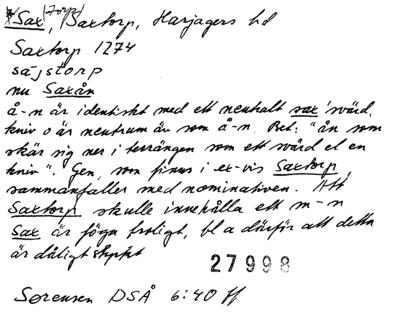 *Sax (torp), Saxtorp, Harjagers hd
Saxtorp 1274
säjstorp
nu Saxån
å-n är identiskt med ett neutralt sax 'svärd,
kniv o är neutrum äv som å-n. Bet: "ån som
skär sig ner i terrängen som ett svärd el en
kniv". Gen, som finns i ex-vis Saxtorp,
sammanfaller med nominativen. Att
Saxtorp skulle innehålla ett m-n
Sax är föga troligt, bl a därför att detta
är dåligt styrkt
27998
Sørensen DSÅ 6:40 ff